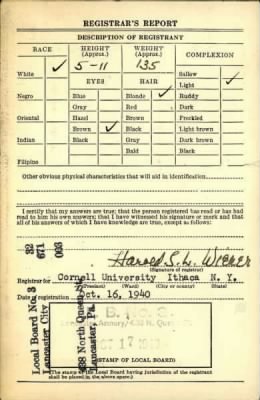 REGISTRAR'S REPORT
DESCRIPTION OF REGISTRANT
RACE HEIGHT (Approx.) WEIGHT (Approx.) COMPLEXION
White ✓ 5-11 135 Sallow
Light ✓
EYES HAIR
Negro Blue Blonde ✓ Ruddy
Gray Red Dark
Oriental Hazel Brown Freckled
Brown ✓ Black Light brown
Indian Black Gray Dark brown
Bald Black
Filipino
Other obvious physical characteristics that will aid in identification
I certify that my answers are true; that the person registered has read or has had
read to him his own answers; that I have witnessed his signature or mark and that
all of his answers of which I have knowledge are true, except as follows:
32 671 003
Harold S. L. Wiener
(Signature of registrar)
Registrar for Cornell University Ithaca N. Y.
(Precinct) (Ward) (City or county) (State)
Date of registration Oct. 16, 1940
Local Board No. 3
Lancaster City
438 North Queen
Lancaster, Pa.
B. No. 3
438 N. Queen
OCT 17
(STAMP OF LOCAL BOARD)
(The stamp of the Local Board having jurisdiction of the registrant
shall be placed in the above space.)